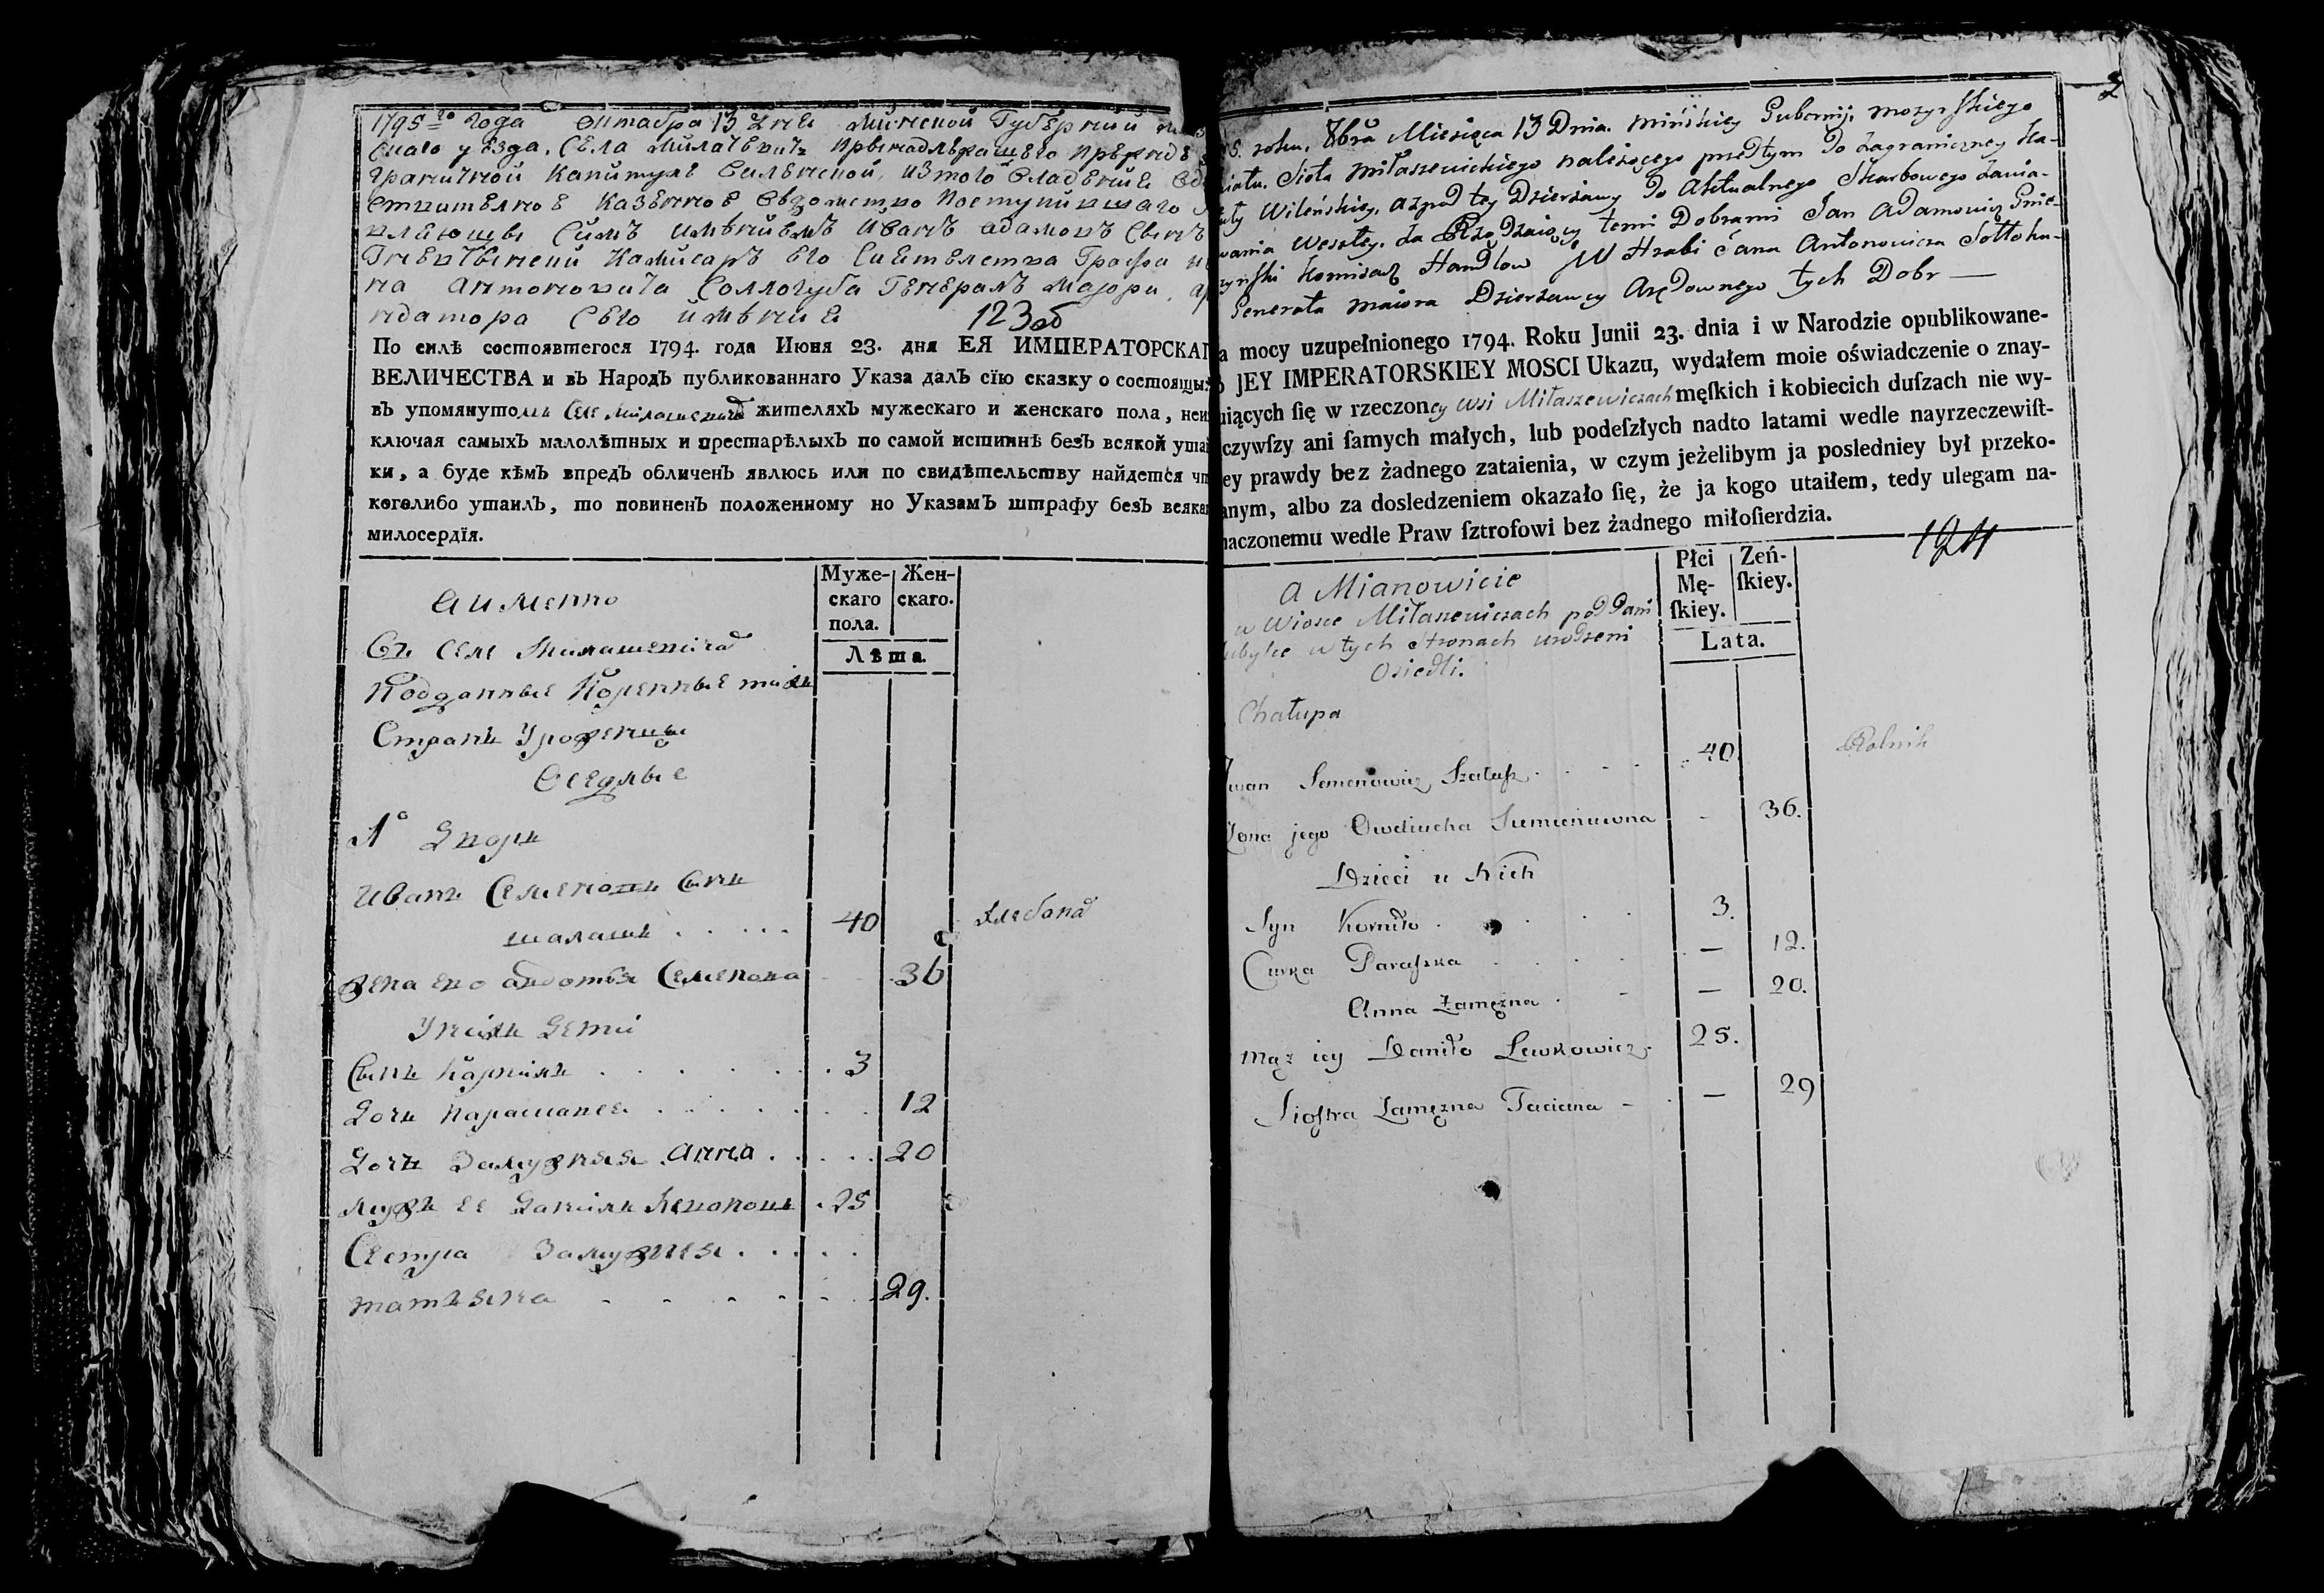 1795го года Октября 13 дня Минской Губернии
скаго уезда, села Милашевичъ принадлежащего прежде
граничной капитуле Виленской, из того владения
казенное ведомство поступившаго
симъ имениемъ Иванъ Адамовъ сынъ
Гневчынски камисаръ его сиятелства Графа
на Антоновича Соллогуба Генералъ Маіора,
ндатора сего имения 123об
По силѣ состоявшегося 1794. года Июня 23. дня ЕЯ ИМПЕРАТОРСКАГ
ВЕЛИЧЕСТВА и въ НародЪ публикованнаго Указа далЪ сїю сказку о состоящыхЪ
въ упомянутомъ селе Милашевичахъ жителяхЪ мужескаго и женскаго пола, неис
ключая самыхЪ малолѣтныхЪ и престарѣлыхЪ по самой истиннѣ безЪ всякой утай
ки, а буде кѣмЪ впредЪ обличенЪ явлюсь или по свидѣтельству найдется чт
коголибо утаилЪ, то повиненЪ положенному но УказамЪ штрафу безЪ всякаг
милосердїя.
Муже-скаго пола. Жен-скаго.
Лѣта.
А имянно
Въ селе Милашевичах
подданные коренные техъ
странъ уроженцы
оседлые
1° дворъ
Иванъ Семеновъ сынъ
шалашъ . . . . . 40 хлебопа
жена ево авдотья Семенова 36
У нихъ дети
Сынъ Карнилъ . . . . . . 3
Дочь парасковея . . . . . . 12
Дочь замужняя Анна . . . . . 20
мужъ ее Данилъ Левковичъ . 25
Сестра замужняя . . . . .
татьяна - - - - - - 29.
2
95. roku. 8bra Miesiąca 13 Dnia. Mińskiey Gubernij. mozyrskiego
wiatu. Sioła miłaszewickiego należącego przedtym do zagraniczney Ka-
tuły Wileńskiey, a zpod tey Dzierżawy do Aktualnego Skarbowego Zawia-
wania weszłey. za Rządzaiący temi Dobrami Jan Adamowicz Gnie-
zyński Komisarz JW Hrabi Jana Antonowicza Sołłohu-
Generała maiora Dzierżawcy Arędownego tych Dobr —
a mocy uzupełnionego 1794. Roku Junii 23. dnia i w Narodzie opublikowane-
o JEY IMPERATORSKIEY MOSCI Ukazu, wydałem moie oświadczenie o znay-
uiących ſię w rzeczoney wsi Miłaszewiczach męſkich i kobiecich duſzach nie wy-
czywſzy ani ſamych małych, lub podeſzłych nadto latami wedle nayrzeczewiſt-
ey prawdy bez żadnego zataienia, w czym jeżelibym ja posledniey był przeko-
anym, albo za dosledzeniem okazało ſię, że ja kogo utaiłem, tedy ulegam na-
naczonemu wedle Praw ſztrofowi bez żadnego miłoſierdzia.
124
Płci Mę-ſkiey. Zeń-ſkiey.
Lata.
A Mianowicie
w Wiosce Miłaszewiczach poddani
tubylce w tych stronach urodzeni
Osiedli.
Chałupa
Iwan Semenowicz Szałasz . - - 40 Rolnik
Zona jego Owdiucha Siemionowna - 36.
Dzieci u Nich
Syn Korniło . . . . 3.
Curka Paraszka . . . . — 12.
Anna Zamęzna . - — 20.
Mąz iey Daniło Lewkowicz. 25.
Siostra Zamęzna Taciana - . — 29